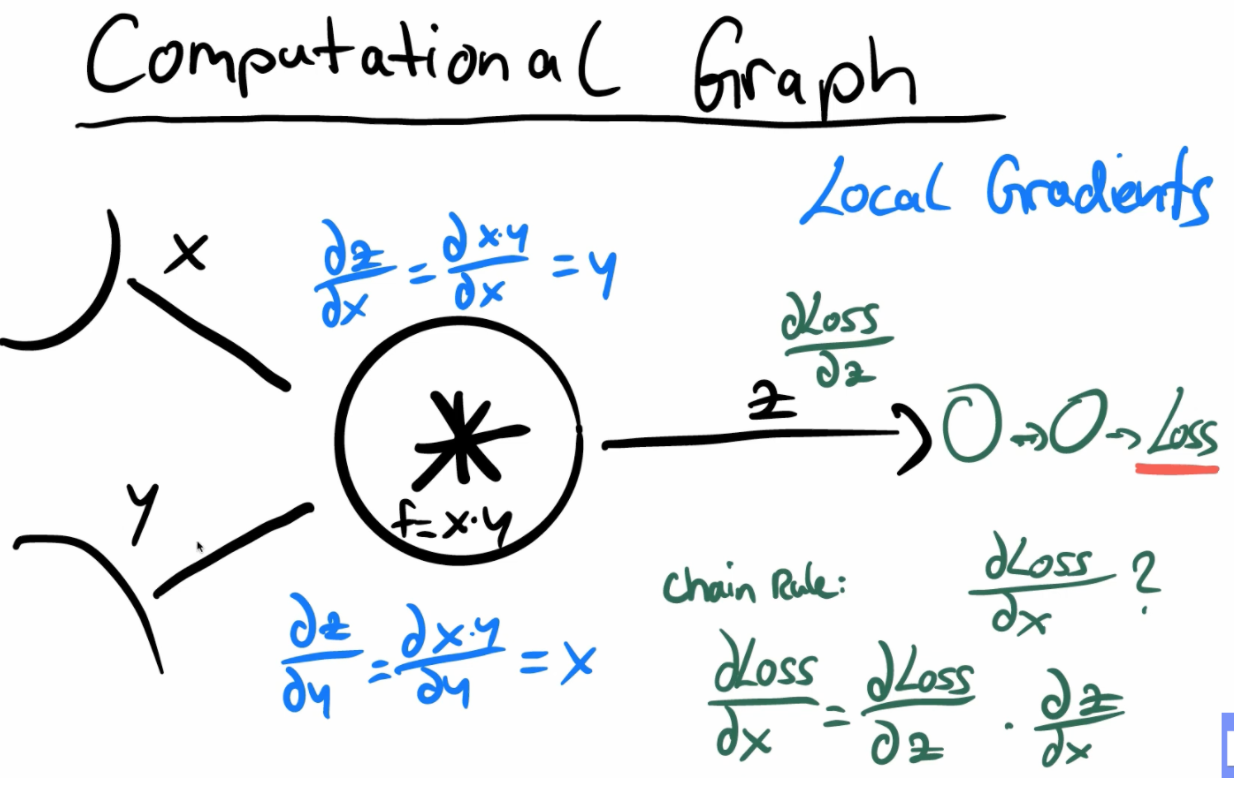 Computational Graph
Local Gradients
x
∂z/∂x = ∂x·y/∂x = y
∂Loss/∂z
z
→ Loss
f=x·y
y
∂z/∂y = ∂x·y/∂y = x
Chain Rule:
∂Loss/∂x ?
∂Loss/∂x = ∂Loss/∂z · ∂z/∂x